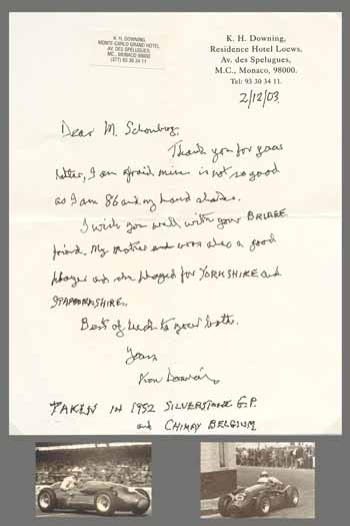 K. H. DOWNING,
MONTE-CARLO GRAND HOTEL,
AV. DES SPELUGUES,
M.C., MONACO 98000
(377) 93 30 34 11
K. H. Downing,
Residence Hotel Loews,
Av. des Spelugues,
M.C., Monaco, 98000.
Tel: 93 30 34 11.
2/12/03
Dear M.
Thank you for your
letter, I am afraid mine is not so good
as I am 86 and my hand shakes.
I wish you well with your BRIDGE
friend. My mother and was also a good
player and she played for YORKSHIRE and
STAFFORDSHIRE.
Best of luck to your both.
Yours
Ken Downing
TAKEN IN 1952 SILVERSTONE G.P.
and CHIMAY BELGIUM